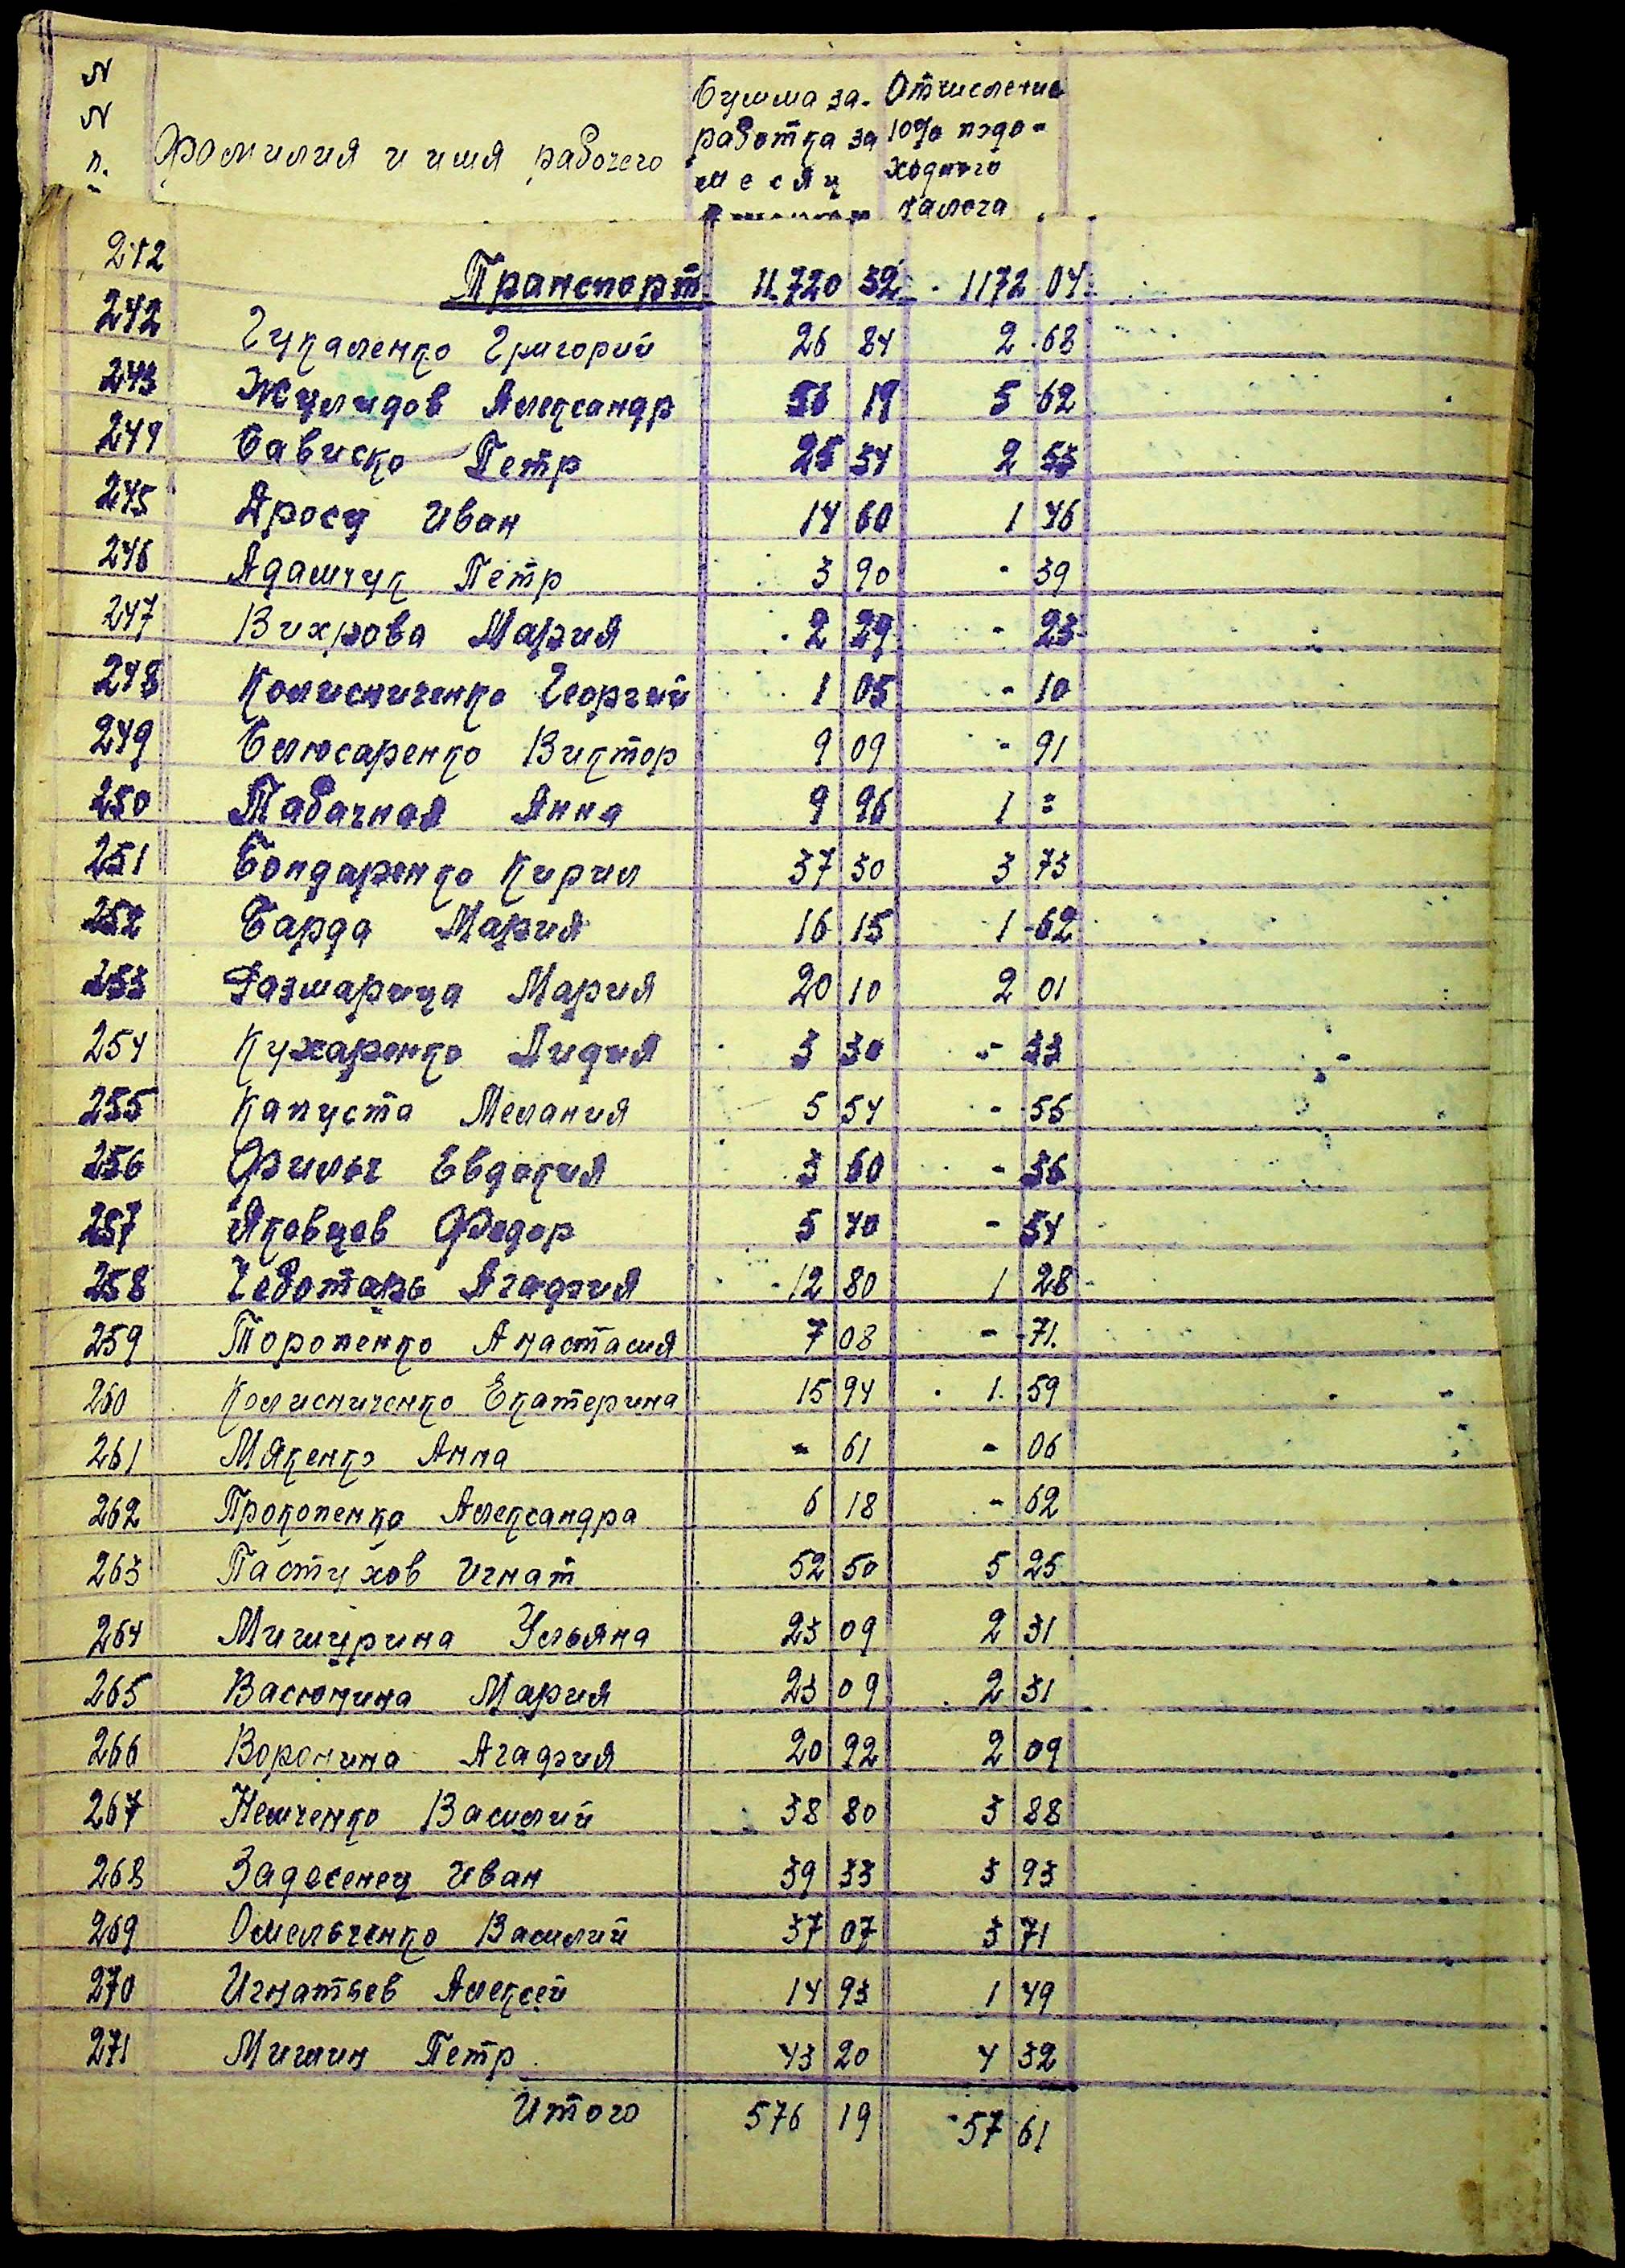 N
N
п.
Фамилия и имя рабочего
Сумма за-
работка за
месяц
Отчисление
10% подо-
ходного
налога
242 Транспорт 11.720 32 1172 04
242 Гукаленко Григорий 26 84 2 68
243 Жулидов Александр 56 19 5 62
244 Сависко Петр 25 34 2 53
245 Аросу Иван 14 60 1 46
246 Адамчук Петр 3 90 - 39
247 Вихрова Мария 2 29 - 23
248 Колисниченко Георгий 1 05 - 10
249 Слюсаренко Виктор 9 09 - 91
250 Табачная Анна 9 96 1 =
251 Бондаренко Кирил 37 30 3 73
252 Барда Мария 16 15 1 62
253 Мария 20 10 2 01
254 Кухаренко Лидия 3 30 - 33
255 Капуста Мелания 5 54 - 55
256 Филь Евдокия 3 60 - 36
257 Яковцев Федор 5 40 - 54
258 Чеботарь Агафия 12 80 1 28
259 Торопенко Анастасия 7 08 - 71
260 Колисниченко Екатерина 15 94 1 59
261 Макенко Анна - 61 - 06
262 Прокопенко Александра 6 18 - 62
263 Пастухов Игнат 52 50 5 25
264 Мишурина Ульяна 23 09 2 31
265 Васюнина Мария 23 09 2 31
266 Воронина Агафия 20 92 2 09
267 Немченко Василий 38 80 3 88
268 Задесенец Иван 39 33 3 93
269 Омельченко Василий 37 07 3 71
270 Игнатьев Алексей 14 93 1 49
271 Мишин Петр 43 20 4 32
Итого 576 19 57 61